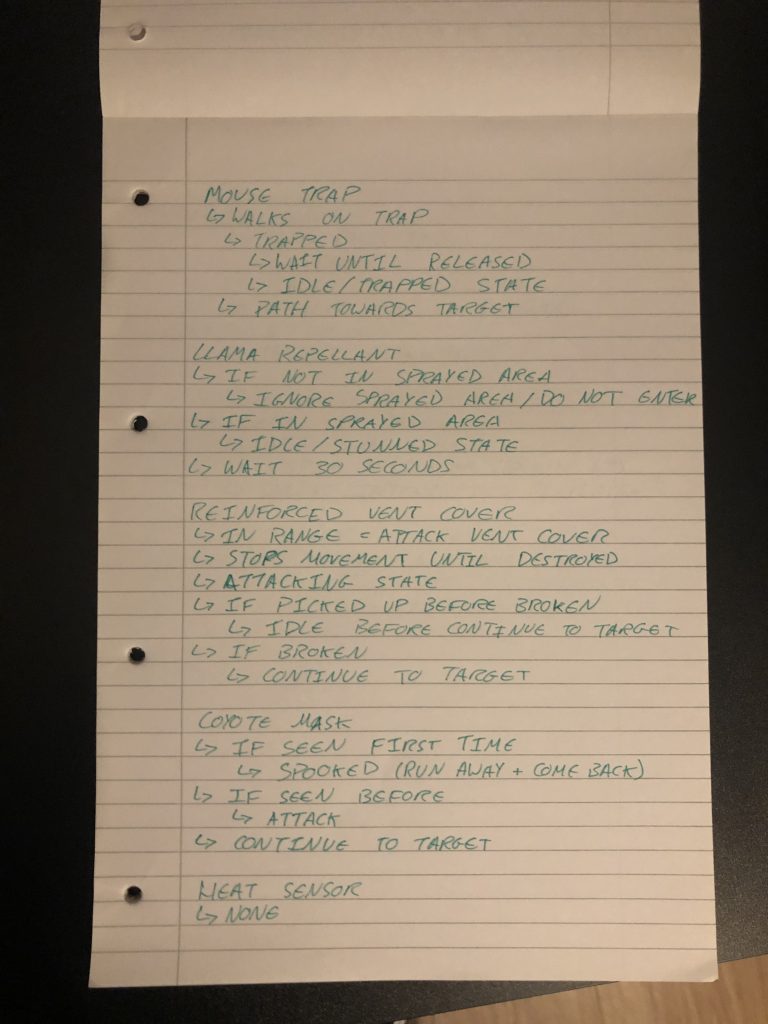 MOUSE TRAP
↳ WALKS ON TRAP
↳ TRAPPED
↳ WAIT UNTIL RELEASED
↳ IDLE/TRAPPED STATE
↳ PATH TOWARDS TARGET
LLAMA REPELLANT
↳ IF NOT IN SPRAYED AREA
↳ IGNORE SPRAYED AREA / DO NOT ENTER
↳ IF IN SPRAYED AREA
↳ IDLE/STUNNED STATE
↳ WAIT 30 SECONDS
REINFORCED VENT COVER
↳ IN RANGE = ATTACK VENT COVER
↳ STOPS MOVEMENT UNTIL DESTROYED
↳ ATTACKING STATE
↳ IF PICKED UP BEFORE BROKEN
↳ IDLE BEFORE CONTINUE TO TARGET
↳ IF BROKEN
↳ CONTINUE TO TARGET
COYOTE MASK
↳ IF SEEN FIRST TIME
↳ SPOOKED (RUN AWAY + COME BACK)
↳ IF SEEN BEFORE
↳ ATTACK
↳ CONTINUE TO TARGET
HEAT SENSOR
↳ NONE